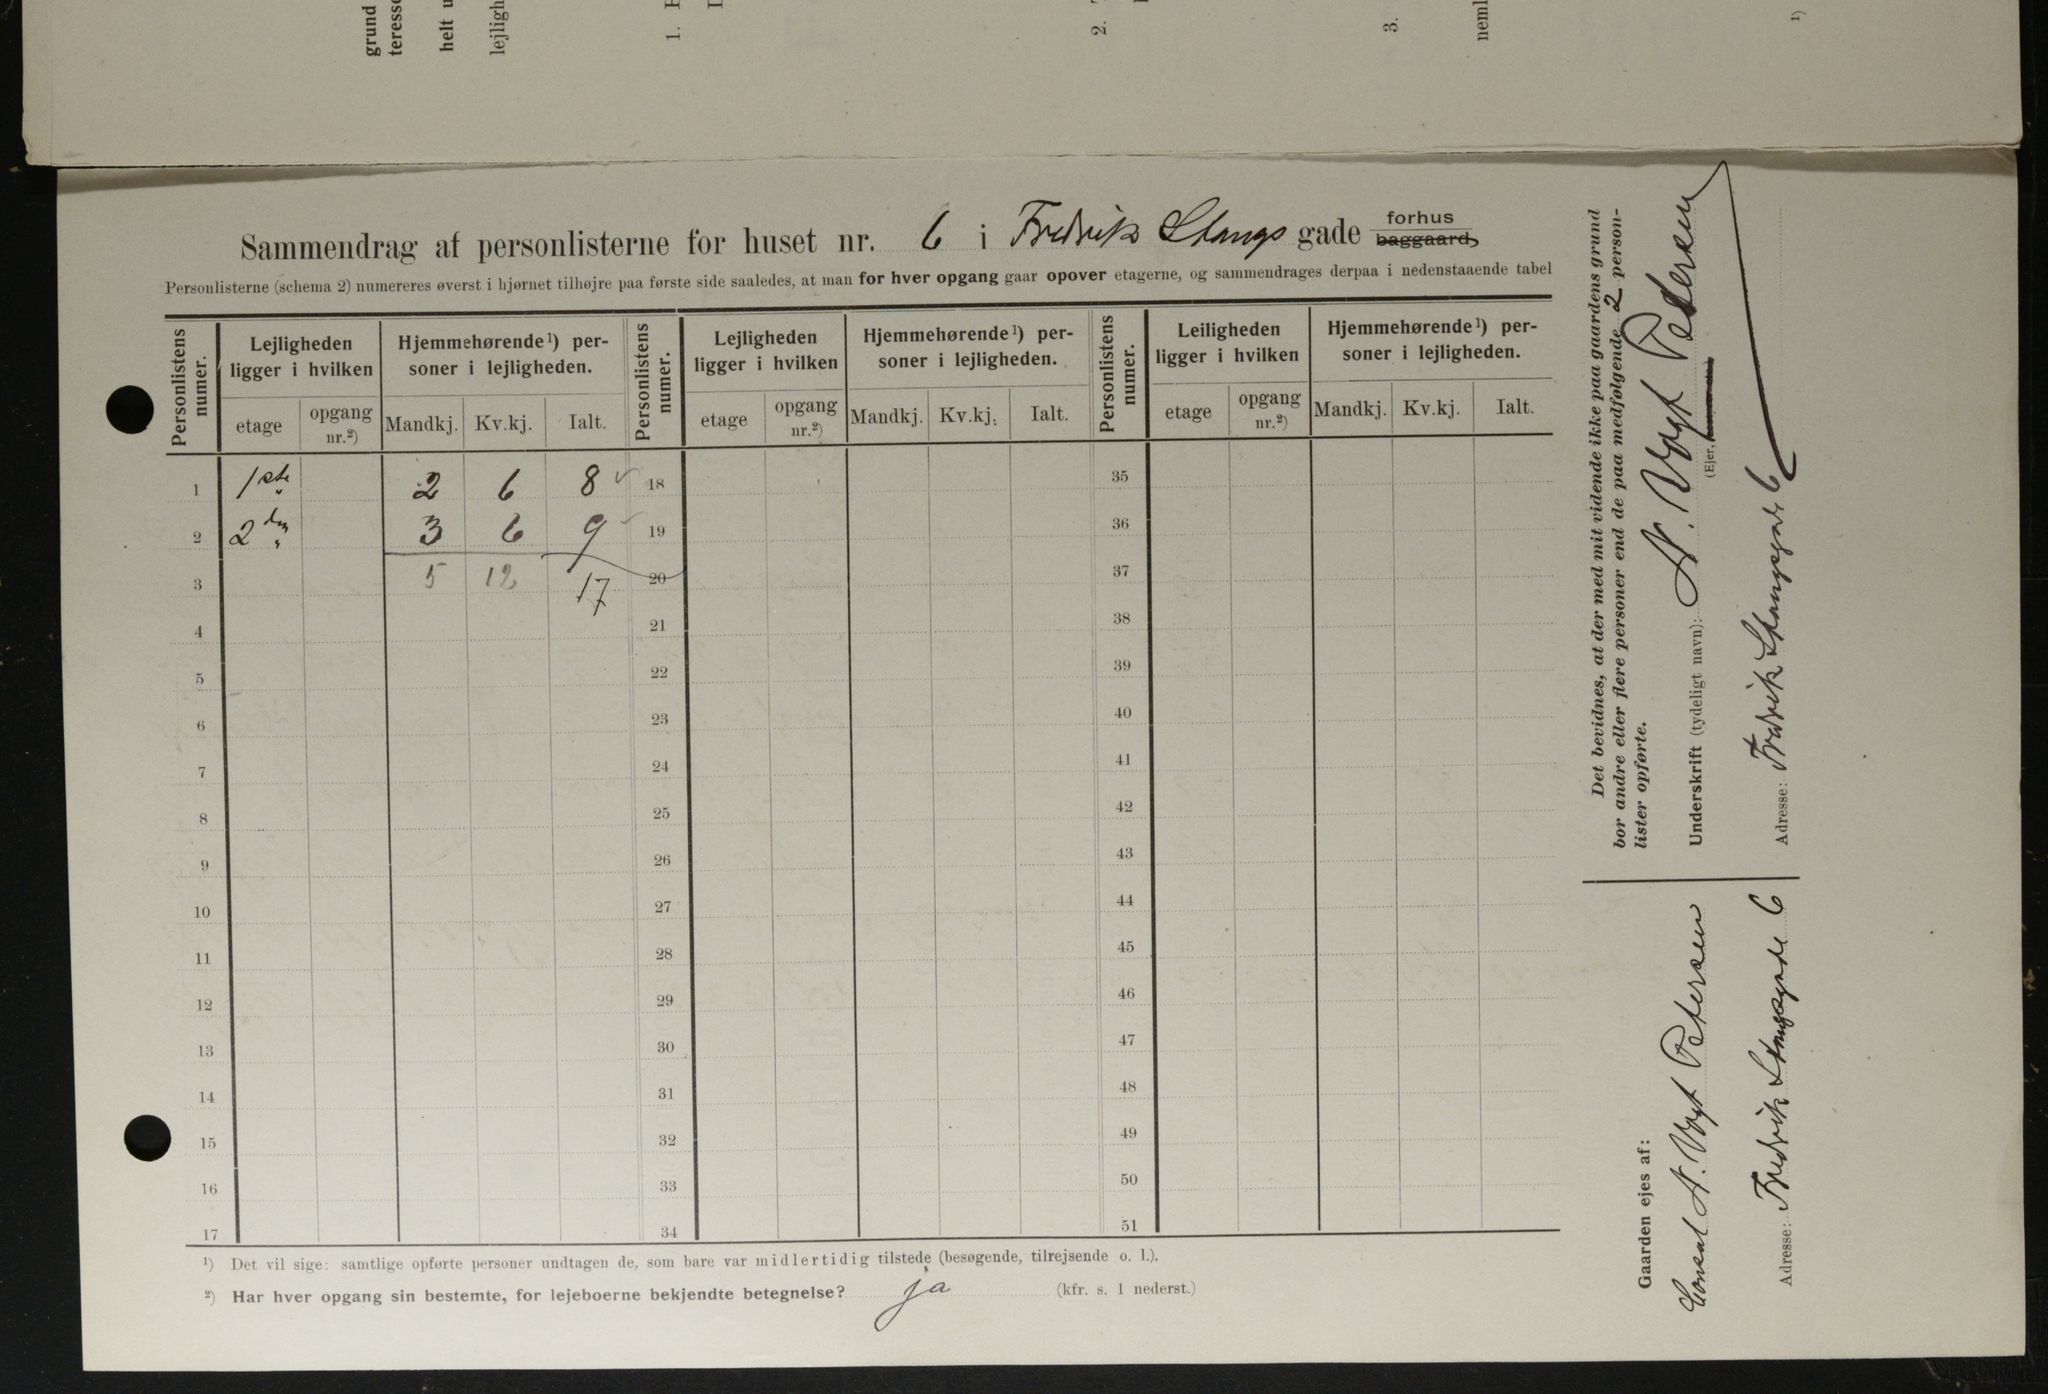 grund
teresse
helt u
lejligh
1.
2.
3.
neml
1)
Sammendrag af personlisterne for huset nr. 6 i Fredrik Stangs gade forhus baggaard,
Personlisterne (schema 2) numereres øverst i hjørnet tilhøjre paa første side saaledes, at man for hver opgang gaar opover etagerne, og sammendrages derpaa i nedenstaaende tabel
Personlistens numer. Lejligheden ligger i hvilken Hjemmehørende¹) personer i lejligheden. Personlistens numer. Lejligheden ligger i hvilken Hjemmehørende¹) personer i lejligheden. Personlistens numer. Leiligheden ligger i hvilken Hjemmehørende¹) personer i lejligheden.
etage opgang nr.²) Mandkj. Kv.kj. Ialt. etage opgang nr.²) Mandkj. Kv.kj. Ialt. etage opgang nr.²) Mandkj. Kv.kj. Ialt.
1 1ste 2 6 8 18 35
2 2den 3 6 9 19 36
3 5 12 17 20 37
4 21 38
5 22 39
6 23 40
7 24 41
8 25 42
9 26 43
10 27 44
11 28 45
12 29 46
13 30 47
14 31 48
15 32 49
16 33 50
17 34 51
¹) Det vil sige: samtlige opførte personer undtagen de, som bare var midlertidig tilstede (besøgende, tilrejsende o. l.).
²) Har hver opgang sin bestemte, for lejeboerne bekjendte betegnelse? ja (kfr. s. 1 nederst.)
Det bevidnes, at der med mit vidende ikke paa gaardens grund
bor andre eller flere personer end de paa medfølgende 2 person-
lister opførte.
Underskrift (tydeligt navn): N. Vogt Petersen
(Ejer,
Adresse: Fredrik Stangsgade 6
Gaarden ejes af:
Consul N. Vogt Petersen
Adresse: Fredrik Stangsgade 6